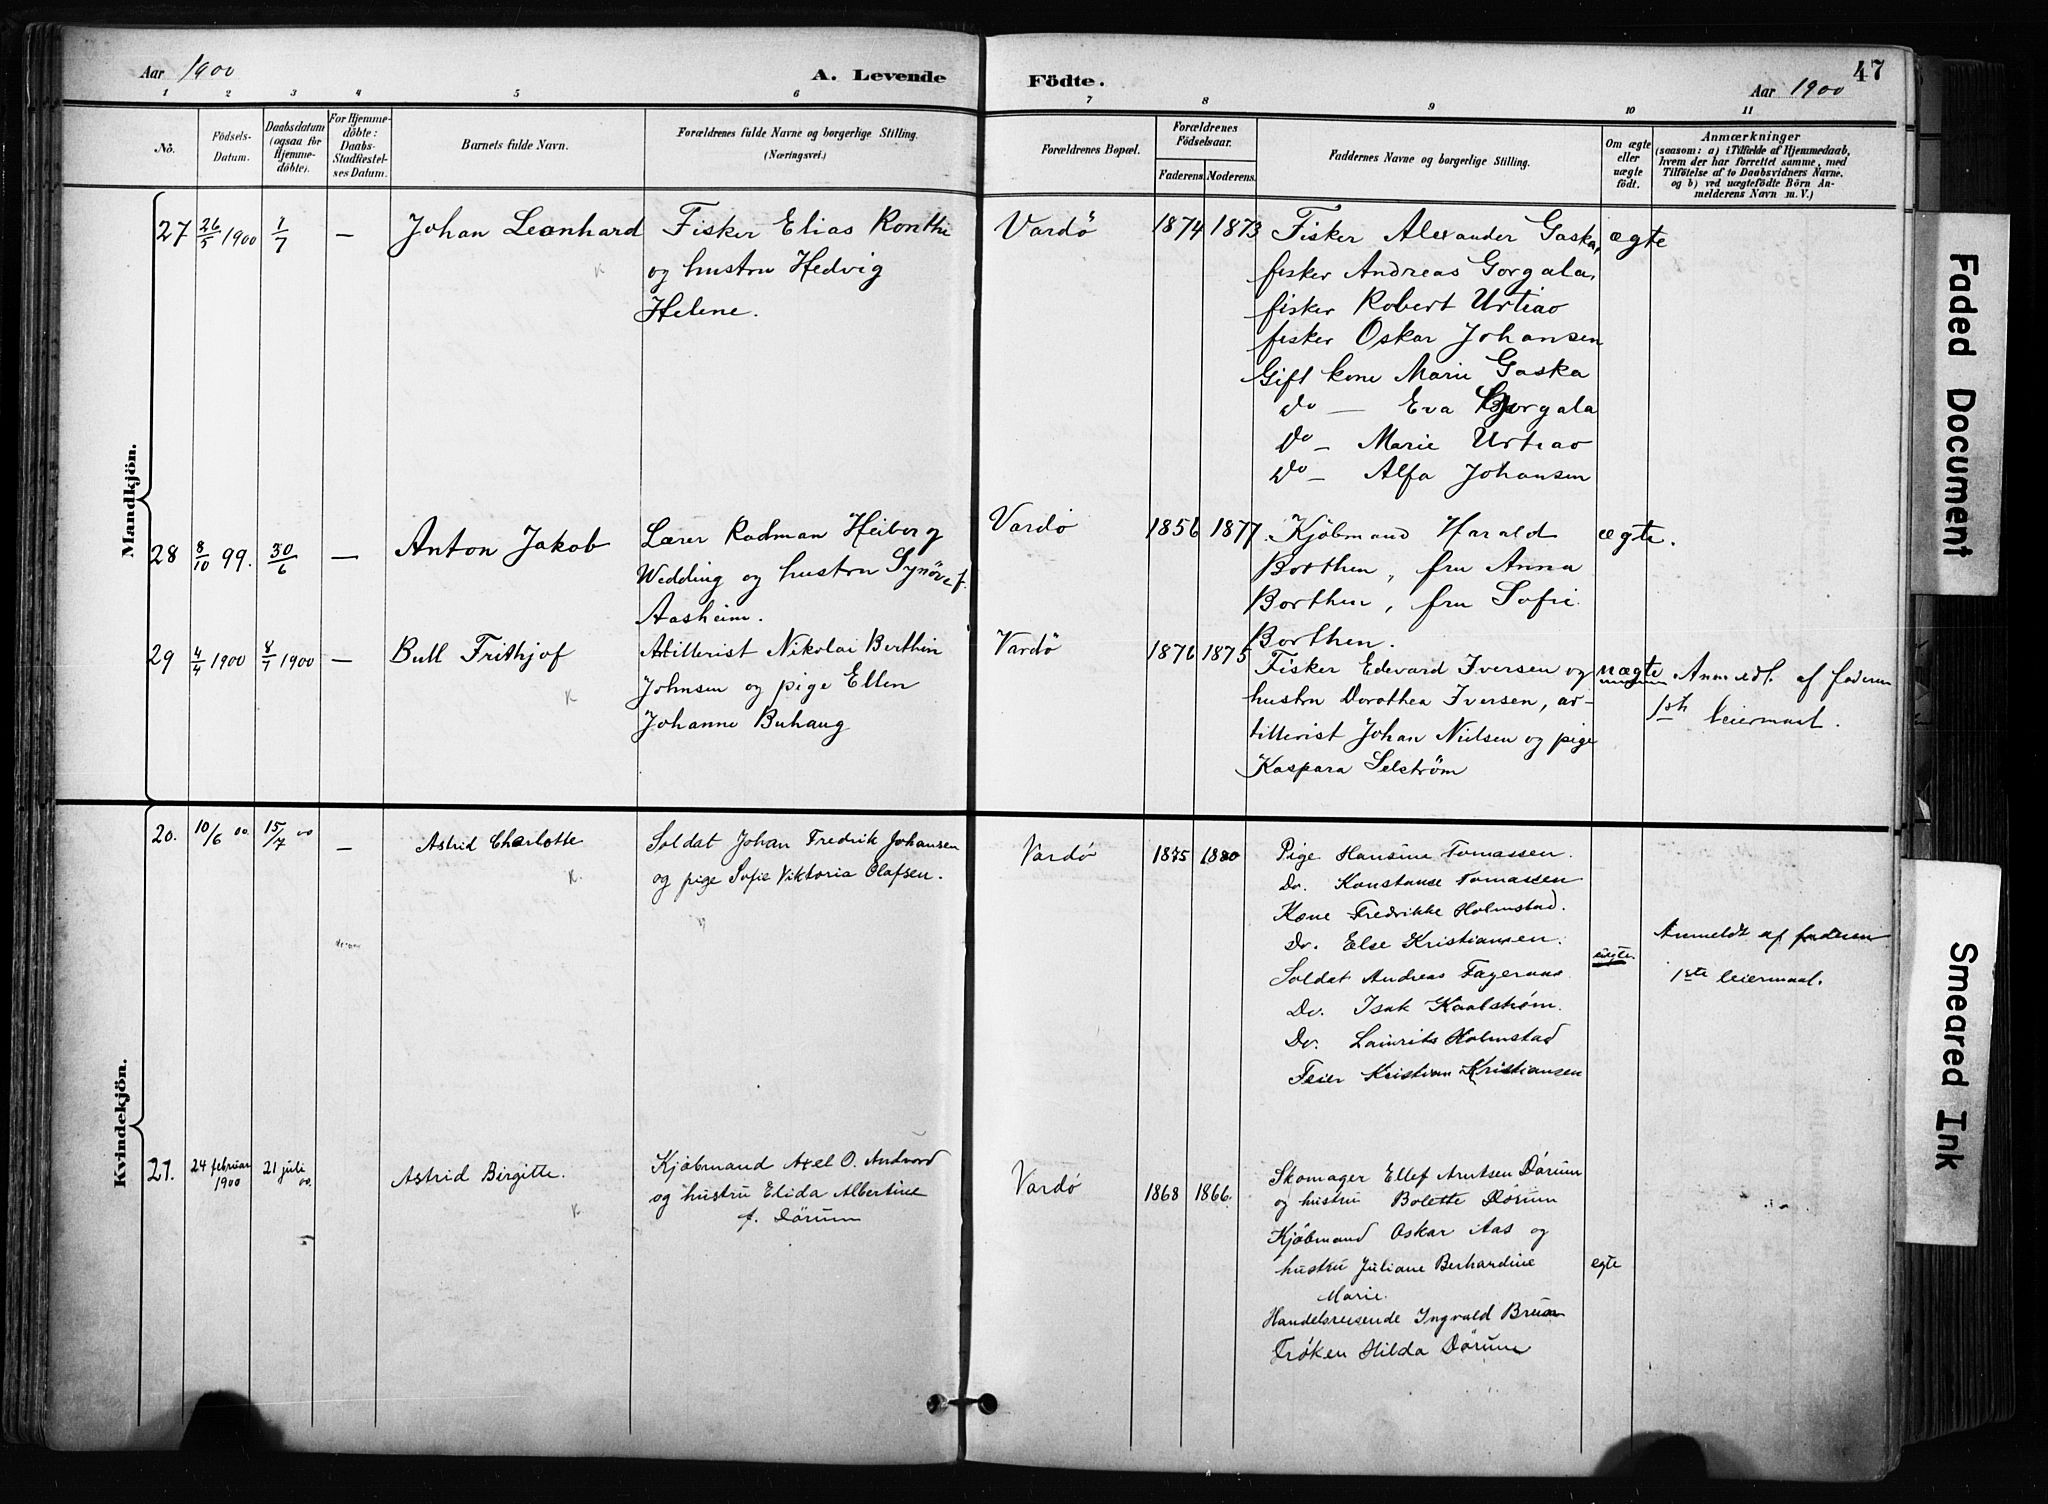 Aar 1900
A. Levende
Födte.
47
Aar 1900
1 2 3 4 5 6 7 8 9 10 11
No.
Födsels-
Datum.
Daabsdatum
(ogsaa for
Hjemme-
döbte).
For Hjemme-
döbte:
Daabs-
Stadfæstel-
ses Datum.
Barnets fulde Navn.
Forældrenes fulde Navne og borgerlige Stilling.
(Næringsvei.)
Forældrenes Bopæl.
Forældrenes
Födselsaar.
Faderens.
Moderens.
Faddernes Navne og borgerlige Stilling.
Om ægte
eller
uægte
födt.
Anmærkninger
(saasom: a) i Tilfælde af Hjemmedaab,
hvem der har forrettet samme, med
Tilföielse af to Daabsvidners Navne.
og b) ved uægtefödte Börn An-
melderens Navn m. V.)
Mandkjön.
27 26/5 1900 1/7 — Johan Leonhard
Fisker Elias Konthi
og hustru Hedvig
Helene.
Vardö 1874 1873
Fisker Alexander Gaska,
fisker Andreas Gorgala,
fisker Robert Urtiao
fisker Oskar Johansen
Gift kone Marie Gaska
Do — Eva Gorgala
Do — Marie Urtiao
Do — Alfa Johansen
ægte
28 8/10 99. 30/6 — Anton Jakob
Lærer Rodman Heiberg
Wedding og hustru Synöve f.
Aasheim.
Vardö 1856 1877.
Kjöbmand Harald
Borthen, fru Anna
Borthen, fru Sofie
Borthen.
ægte.
29 4/4 1900 8/7 1900 — Bull Frithjof
Artillerist Nikolai Berthin
Johnsen og pige Ellen
Johanne Buhaug
K
Vardö 1876 1875
Fisker Edevard Iversen og
hustru Dorothea Iversen, ar-
tillerist Johan Nielsen og pige
Kaspara Selström
uægte
Anmeldt af faderen
1ste leiermaal.
Kvindekjön.
20. 10/6 00. 15/7 00 — Astrid Charlotte
K.
Soldat Johan Fredrik Johansen
og pige Sofie Viktoria Olafsen.
Vardö 1875 1880
Pige Hansine Tomassen.
Do. Konstanse Tomassen
Kone Fredrikke Holmstad.
Do. Else Kristiansen.
Soldat Andreas
Do. Isak Kaalström.
Do. Holmstad
Feier Kristian Kristiansen
uægte.
Anmeldt af faderen
1ste leiermaal.
21. 24 februar 1900 21 juli 00. Astrid Birgitte.
K
Kjöbmand Axel O. Andvord
og hustru Elida Albertine
f. Dörum
Vardö 1868 1866.
Skomager Ellef Arntsen Dörum
og hustru Bolette Dörum
Kjöbmand Oskar Aas og
hustru Juliane Berhardine
Marie.
Handelsreisende Ingvald Bruun
Fröken Hilda Dörum
egte
Faded Document
Smeared Ink